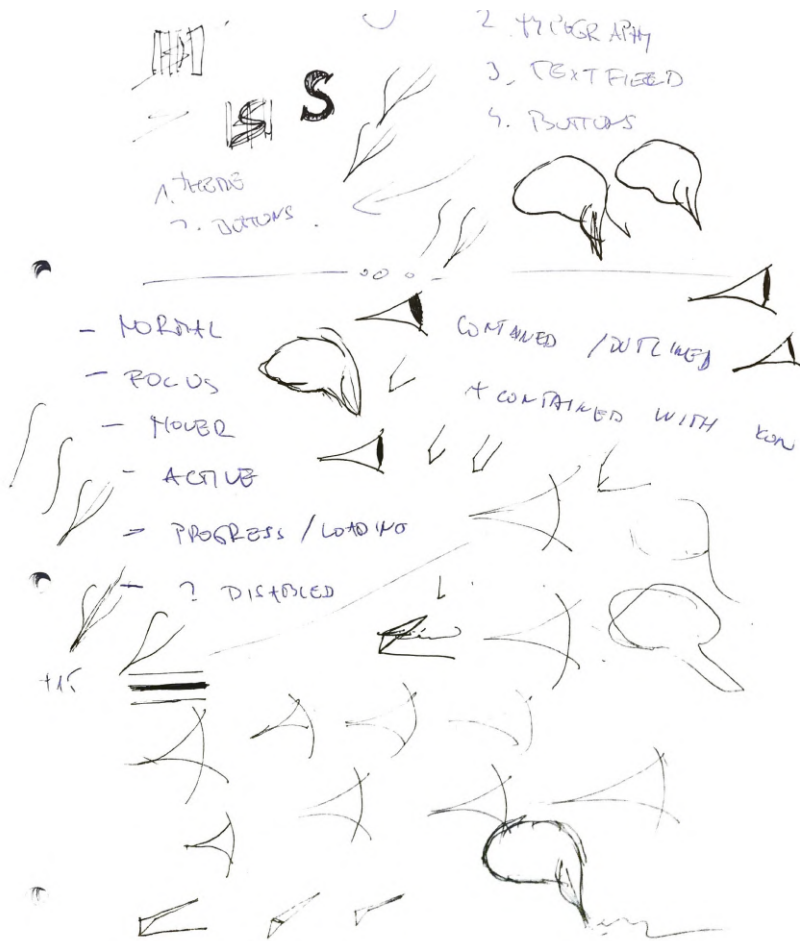 2. TYPOGRAPHY
3. TEXTFIELD
4. BUTTONS
S S
1. THEME
2. BUTTONS.
- NORMAL
- FOCUS
- HOVER
- ACTIVE
- PROGRESS / LOADING
- ? DISABLED
CONTAINED / OUTLINED
+ CONTAINED WITH ICON